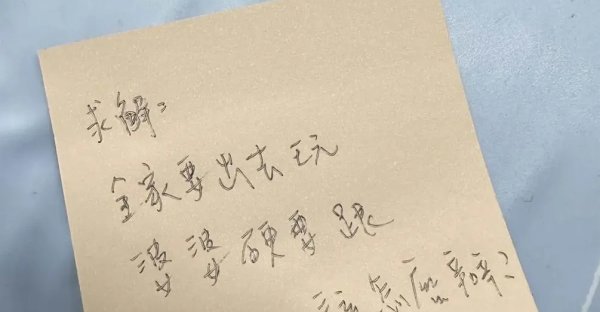 求解:
全家要出去玩
婆婆硬要跟
该怎麽辦?